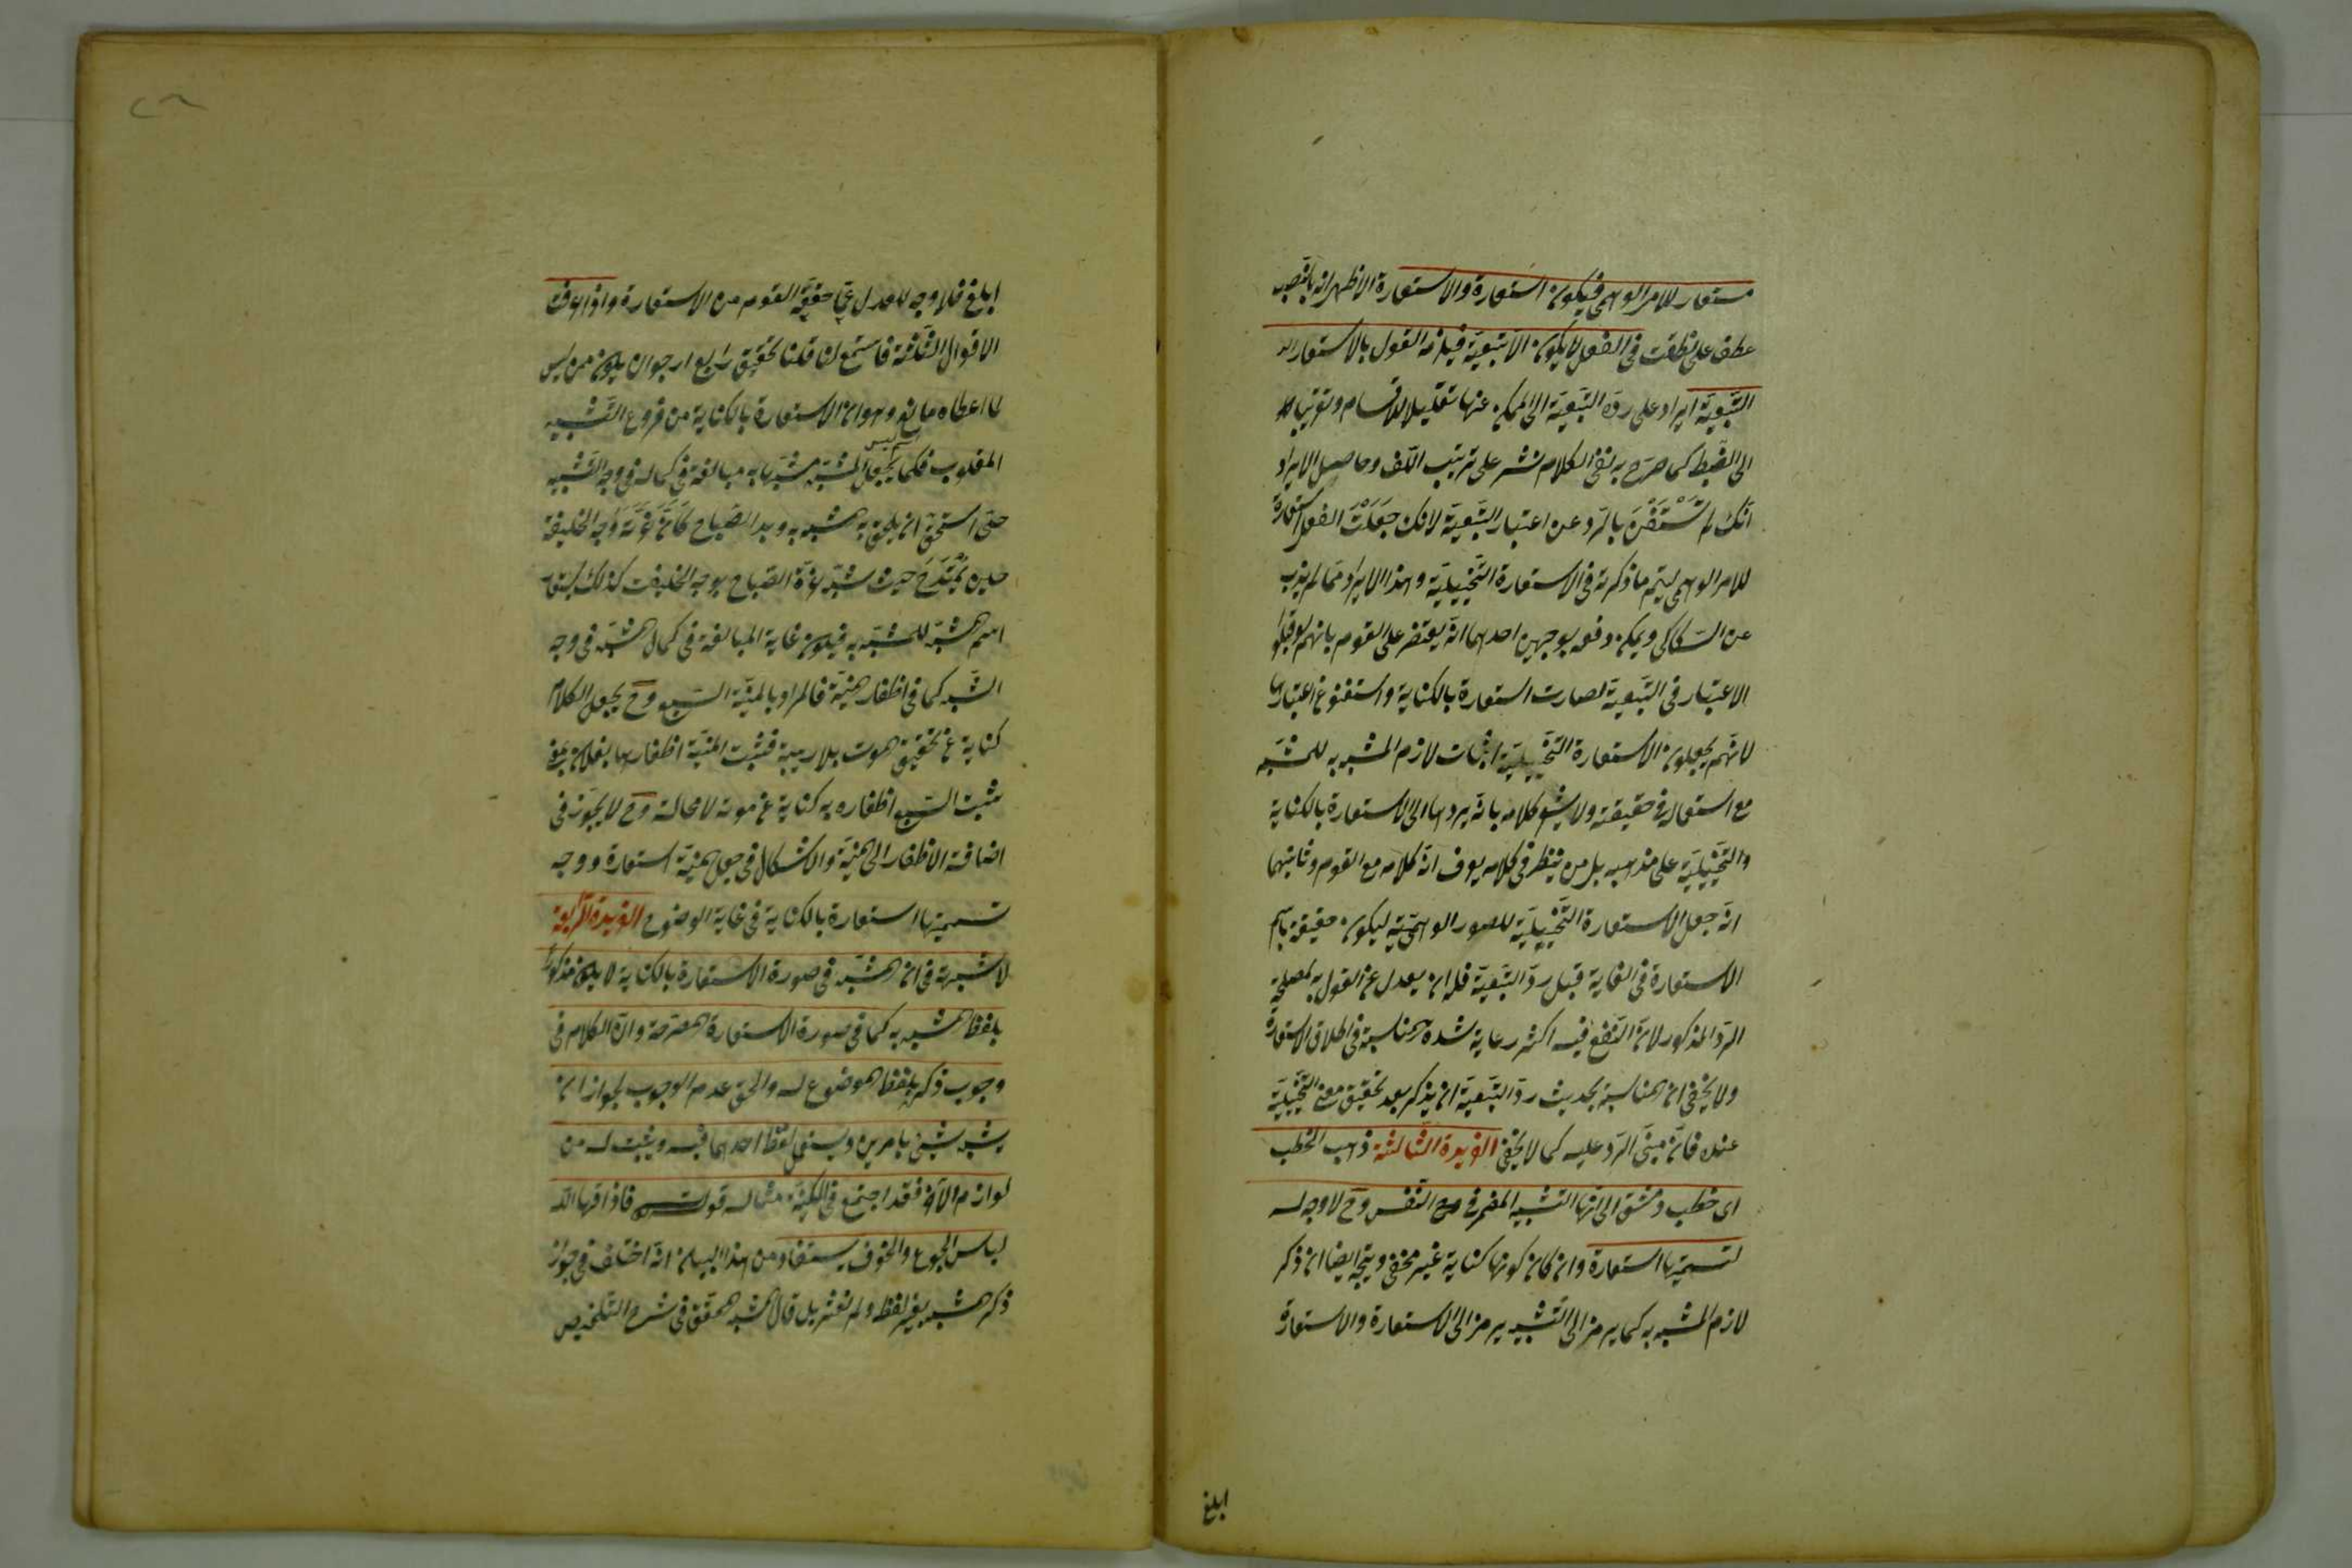 مستعار للامر الوهمى فيكون استعارة والاستعارة الاظهر انه بالنصب
عطف على نطقت فى الفعل لا يكون الا تبعية فيلزمه القول بالاستعارة
التبعية ايراد على رده التبعية الى المكنى عنها تقليلا للاقسام وتقريبا
الى الضبط كما صرح به ففى الكلام نشر على ترتيب اللف وحاصل الايراد
انك لم تستغن بالرد عن اعتبار التبعية لانك جعلت الفعل استعارة
للامر الوهمى ليتم ما ذكرته فى الاستعارة التخييلية وهذا الايراد مما لم يذب
عن السكاكى ويمكن دفعه بوجهين احدهما انه يعترض على القوم بانهم لو قبلوا
الاعتبار فى التبعية لصارت استعارة بالكناية واستغنوا عن اعتبارها
لانهم يجعلون الاستعارة التخييلية اثبات لازم المشبه به للمشبه
مع استعماله فى حقيقته ولا يشعر كلامه بانه يردها الى الاستعارة بالكناية
والتخييلية على مذهبه بل من ينظر فى كلامه يعرف انه كلامه مع القوم وثانيهما
انه جعل الاستعارة التخييلية للصور الوهمية ليكون حقيقة باسم
الاستعارة فى الغاية قبل رد التبعية فله ان يعدل عن القول به لمصلحة
الرد المذكور لان النفع فيه اكثر رعاية شدة المناسبة فى اطلاق الاستعارة
ولا يخفى ان المناسبة بحديث رد التبعية ان يذكر بعد تحقيق معنى التخييلية
عنده فانه مبنى الرد عليه كما لا يخفى الفريدة الثالثة ذهب الخطيب
اى خطيب دمشق الى انها التشبيه المضمر فى النفس وح لا وجه له
لتسميتها استعارة وان كان كونها كناية غير مخفى ويتجه ايضا ان ذكر
لازم المشبه به كما يرمز الى التشبيه يرمز الى الاستعارة والاستعارة
ابلغ
ابلغ فلا وجه للعدول عما حققه القوم من الاستعارة واذ اعرفت
الاقوال الثلثة فاستمع لنا فلنا تحقيق رابع ارجو ان يكون ممن ليس
لما اعطاه مانع وهو ان الاستعارة بالكناية من فروع التشبيه
المقلوب فكما يجعل المشبه مشبها به مبالغة فى كماله فى وجه التشبيه
حتى استحق ان يلحق به المشبه به وبدا الصباح كأن غرته وجه الخليفة
حين يمتدح حيث شبه غرة الصباح بوجه الخليفة كذلك يستعار
اسم المشبه للمشبه به فيكون غاية المبالغة فى كمال المشبه فى وجه
الشبه كما فى اظفار المنية فالمراد بالمنية السبع وح يجعل الكلام
كناية عن تحقيق الموت بلا ريبة فنشبت المنية اظفارها بفلان بمعنى
نشبت السبع اظفاره به كناية عن موته لا محالة وح لا يجوز فى
اضافة الاظفار الى المنية والاشكال فى جعل المنية استعارة ووجه
تسميتها استعارة بالكناية فى غاية الوضوح الفريدة الرابعة
لا شبهة فى ان المشبه فى صورة الاستعارة بالكناية لا يكون مذكورا
بلفظ المشبه به كما فى صورة الاستعارة المصرحة وانما الكلام فى
وجوب ذكره بلفظ الموضوع له والحق عدم الوجوب لجواز ان
يشبه شئ بامرين ويستعمل لفظ احدهما فيه ويثبت له من
لوازم الآخر فقد اجتمع فى المكنية مثاله قوله فاذاقها الله
لباس الجوع والخوف يستفاد من هذا البيان انه اختلف فى جواز
ذكر المشبه بغير لفظه ولم نعثر بل قال المحقق فى شرح التلخيص